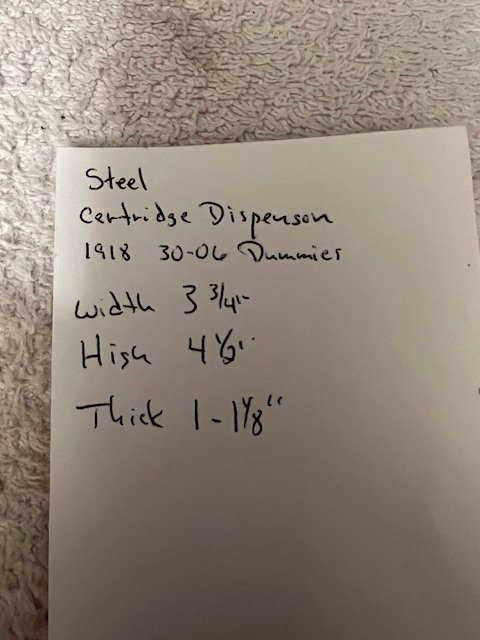 Steel
Cartridge Dispenson
1918 30-06 Dummies
Width 3 3/4"
High 4 1/2"
Thick 1-1 1/8"